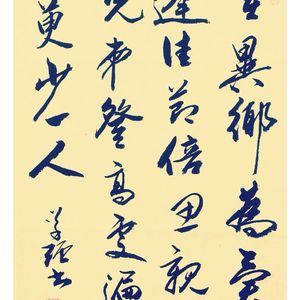 在異鄉為異
逢佳節倍思親
兄弟登高處遍
萸少一人